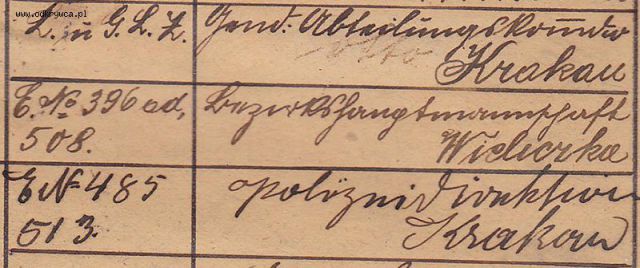 www.odkrywca.pl
L. u G. L. Z. Gend: Abteilungskomdo
Krakau
E. No 396 ad, Bezirkshauptmannschaft
508. Wieliczka
E No 485 Polizeidirektion
513. Krakau